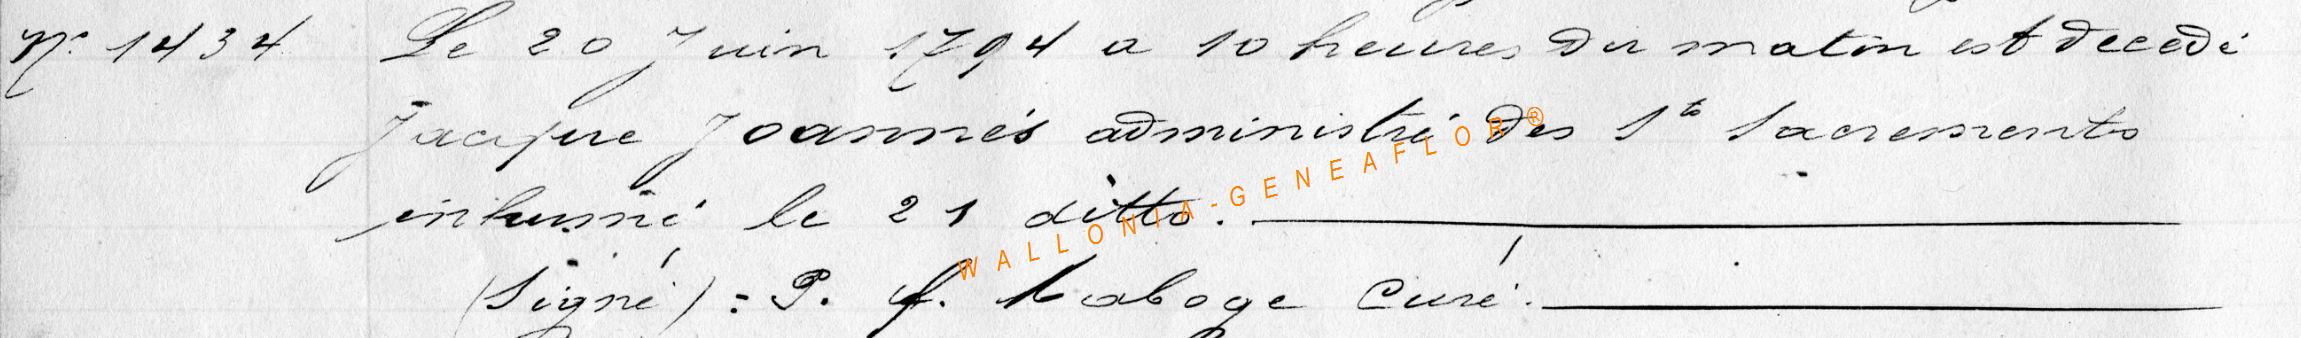 N° 1434 Le 20 Juin 1794 a 10 heures du matin est decedé
Jacque Joannés administré des Sts Sacrements
inhumé le 21 ditto.
(Signé) = P. f. Laboge Curé.
WALLONIA-GENEAFLOR®